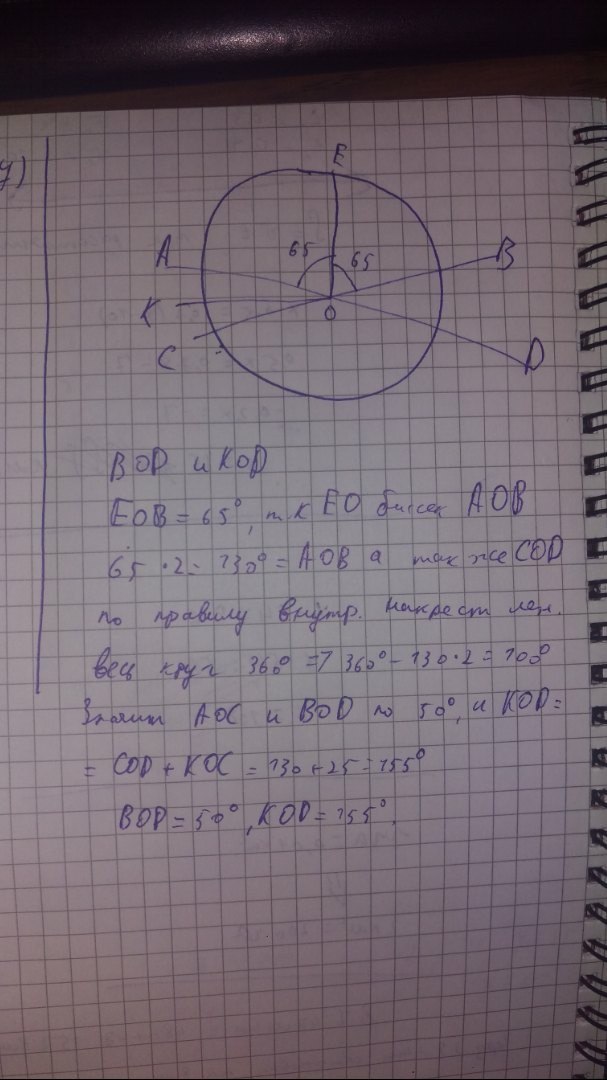 4)
E
A
65
65
B
K
O
C
D
BOD и KOD
EOB = 65°, т к EO биссек AOB
65 · 2 = 130° = AOB а так же COD
по правилу внутр. накрест леж.
весь круг 360° => 360° - 130·2 = 100°
Значит AOC и BOD по 50°, и KOD =
= COD + KOC = 130 + 25 = 155°
BOD = 50°, KOD = 155°.